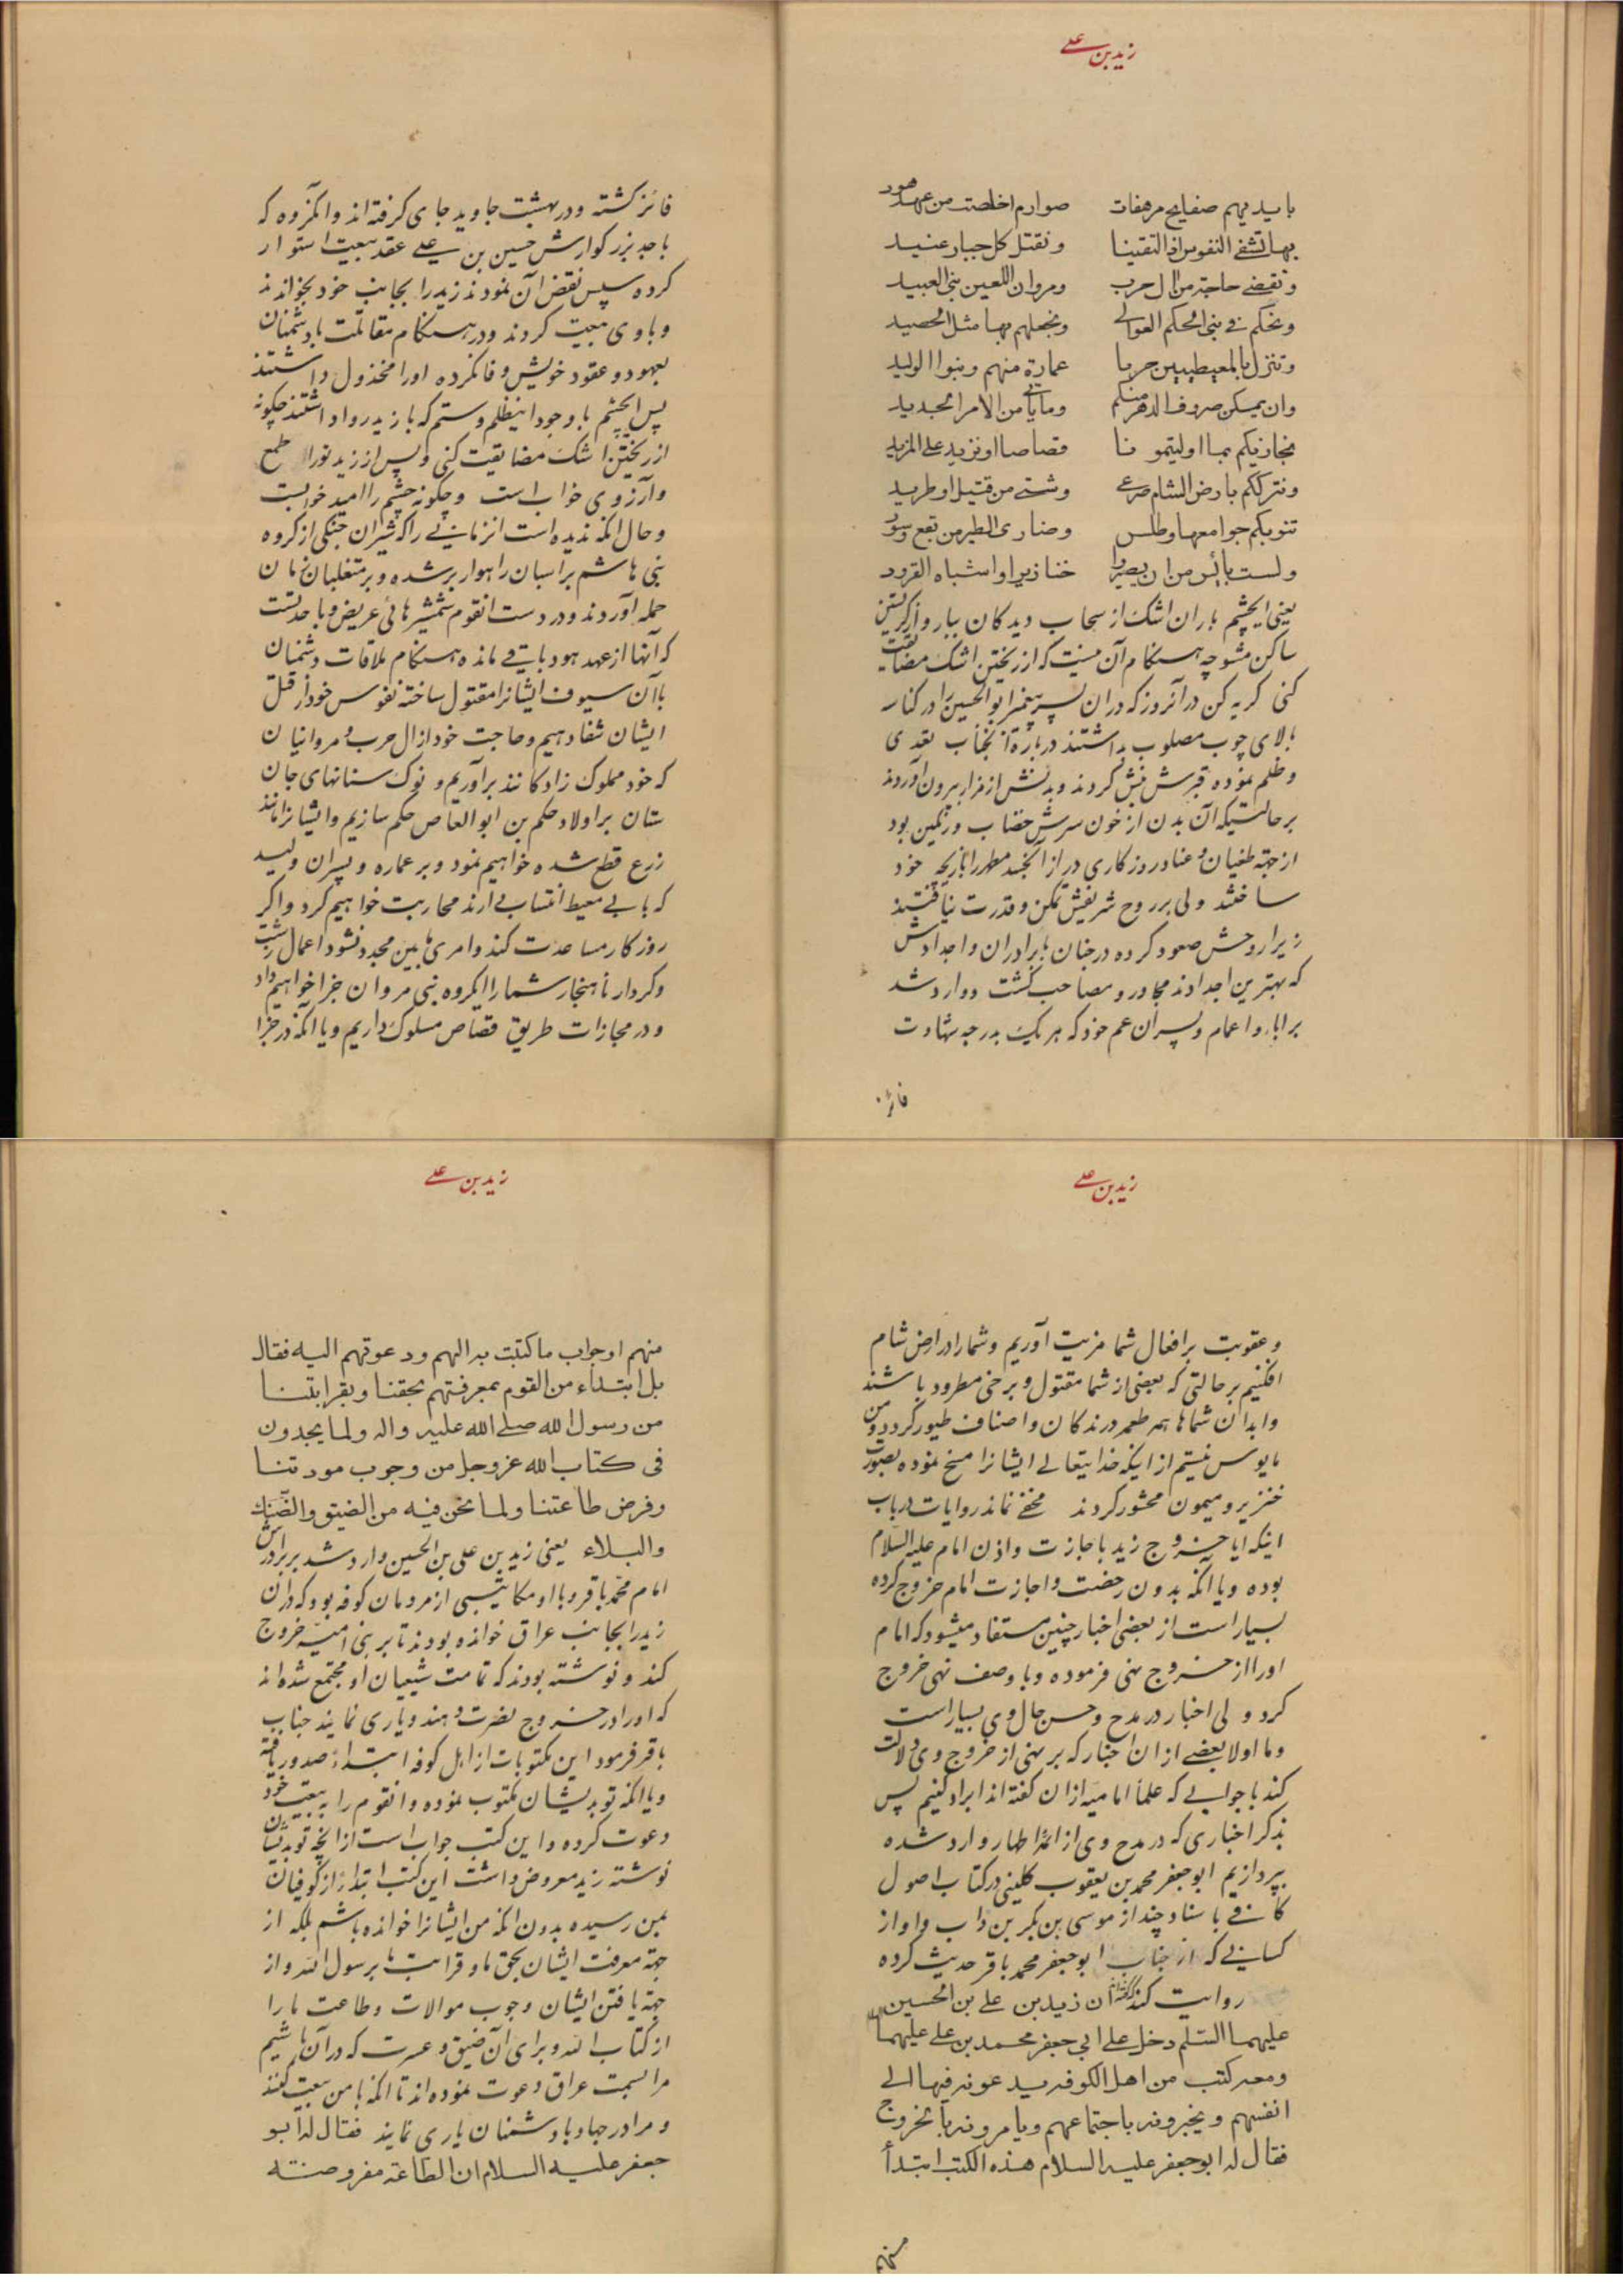 زید بن علی
بایدیهم صفایح مرهفات صوارم اخلصت من عهد هود
بها تشفی النفوس اذا التقینا و نقتل کل جبار عنید
و نقضی حاجة من ال حرب و مروان اللعین بنی العبید
و نحکم فی بنی الحکم العوالی و نجعلهم بها مثل الحصید
و ننزل بالمعیطیین حربا عمارة منهم و بنوا الولید
وان یمکن صروف الدهر منکم و ما یأتی من الامر الجدید
نجازیکم بما اولیتمونا قصاصا او نزید علی المزید
و نترککم بارض الشام صرعی و شتی من قتیل او طرید
تنوبکم جوامعها و طلس و ضاری الطیر من بقع و سود
و لست بائس من ان یصیروا خنازیرا و اشباه القرود
یعنی ایچشم باران اشک از سحاب دیدکان ببار و از کریستن
ساکن مشو چه هنکام آن نیست که از ریختن اشک مضایقت
کنی کریه کن در آنروز که دران پسر پیغمبر ابو الحسین را در کناسه
بالای چوب مصلوب بداشتند درباره آنجناب تعدی
و ظلم نموده قبرش نبش کردند و بدنش از مزار بیرون آوردند
بر حالتیکه آن بدن از خون سرش خضاب و رنکین بود
از جهة طغیان و عناد روزکاری دراز آنجسد مطهر را بازیچه خود
ساختند ولی بر روح شریفش تمکن و قدرت نیافتند
زیرا روحش صعود کرده در جنان با برادران و اجدادش
که بهترین اجدادند مجاور و مصاحب کشت و وارد شد
بر اباء و اعمام و پسران عم خود که هر یک بدرجه شهادت
فائز
فائز کشته و در بهشت جاوید جای کرفته اند و انکروه که
با جد بزرکوارش حسین بن علی عقد بیعت استوار
کرده سپس نقض آن نمودند زید را بجانب خود بخواندند
و با وی بیعت کردند و در هنکام مقاتلت با دشمنان
بعهود و عقود خویش وفا نکرده او را مخذول داشتند
پس ایچشم با وجود اینظلم و ستم که با زید روا داشتند چکونه
از ریختن اشک مضایقت کنی و پس از زید تو را طمع
و آرزوی خواب است و چکونه چشم را امید خوابست
و حال انکه ندیده است انزمانی را که شیران جنکی از کروه
بنی هاشم بر اسبان راهوار بر شده و بر متغلبان زمان
حمله آوردند و در دست انقوم شمشیرهائی عریض و با حدتست
که آنها از عهد هود باقی مانده هنکام ملاقات دشمنان
با آن سیوف ایشانرا مقتول ساخته نفوس خود از قتل
ایشان شفا دهیم و حاجت خود از ال حرب و مروانیان
که خود مملوک زادکانند برآوریم و نوک سنانهای جان
ستان بر اولاد حکم بن ابو العاص حکم سازیم و ایشانرا مانند
زرع قطع شده خواهیم نمود و بر عماره و پسران ولید
که با بی معیط انتساب دارند محاربت خواهیم کرد و اکر
روزکار مساعدت کند و امری مابین مجدد نشود اعمال زشت
و کردار ناهنجار شما را ایکروه بنی مروان جزا خواهیم داد
و در مجازات طریق قصاص مسلوک داریم و یا انکه در جزا
زید بن علی
و عقوبت بر افعال شما مزیت آوریم و شما را در ارض شام
افکنیم بر حالتی که بعضی از شما مقتول و برخی مطرود باشند
و ابدان شماها همه طعمه درندکان و اصناف طیور کردد و من
مایوس نیستم از اینکه خدایتعالی ایشانرا مسخ نموده بصورت
خنزیر و میمون محشور کردند مخفی نماند روایات در باب
اینکه ایا خروج زید باجازت و اذن امام علیه السلام
بوده و یا انکه بدون رخصت و اجازت امام خروج کرده
بسیار است از بعضی اخبار چنین مستفاد میشود که امام
او را از خروج نهی فرموده و با وصف نهی خروج
کرد ولی اخبار در مدح و حسن حال وی بسیار است
و ما اولا بعضی از ان اخبار که بر نهی از خروج وی دلالت
کند با جوابی که علما امامیه ازان کفته اند ایراد کنیم پس
بذکر اخباری که در مدح وی از ائمه اطهار وارد شده
بپردازیم ابو جعفر محمد بن یعقوب کلینی در کتاب اصول
کافی باسناد چند از موسی بن بکر بن داب و او از
کسانی که از جناب ابو جعفر محمد باقر حدیث کرده
روایت کند ان زید بن علی بن الحسین
علیهما السلم دخل علی ابی جعفر محمد بن علی علیهما
و معه کتب من اهل الکوفه یدعونه فیها الی
انفسهم و یخبرونه باجتماعهم و یامرونه بالخروج
فقال له ابو جعفر علیه السلام هذه الکتب ابتدأ
منهم
زید بن علی
منهم او جواب ما کتبت به الیهم و دعوتهم الیه فقال
بل ابتداء من القوم بمعرفتهم بحقنا و بقرابتنا
من رسول الله صلی الله علیه و اله و لما یجدون
فی کتاب الله عز و جل من وجوب مودتنا
و فرض طاعتنا و لما نحن فیه من الضیق و الضنک
والبلاء یعنی زید بن علی بن الحسین وارد شد بر برادرش
امام محمد باقر و با او مکاتیبی از مردمان کوفه بود که دران
زید را بجانب عراق خوانده بودند تا بر بنی امیه خروج
کند و نوشته بودند که تمامت شیعیان او مجتمع شده اند
که او را در خروج نصرت دهند و یاری نمایند جناب
باقر فرمود این مکتوبات از اهل کوفه ابتداء صدور یافته
و یا انکه تو بدیشان مکتوب نموده و انقوم را به بیعت خود
دعوت کرده و این کتب جواب است از انچه تو بدیشان
نوشته زید معروض داشت این کتب ابتداء از کوفیان
بمن رسیده بدون انکه من ایشانرا خوانده باشم بلکه از
جهة معرفت ایشان بحق ما و قرابت ما برسول الله و از
جهة یافتن ایشان وجوب موالات و طاعت ما را
از کتاب الله و برای آن ضیق و عسرت که در آن باشیم
مرا بسمت عراق دعوت نموده اند تا انکه با من بیعت کنند
و مرا در جهاد با دشمنان یاری نمایند فقال له ابو
جعفر علیه السلام ان الطاعة مفروضته